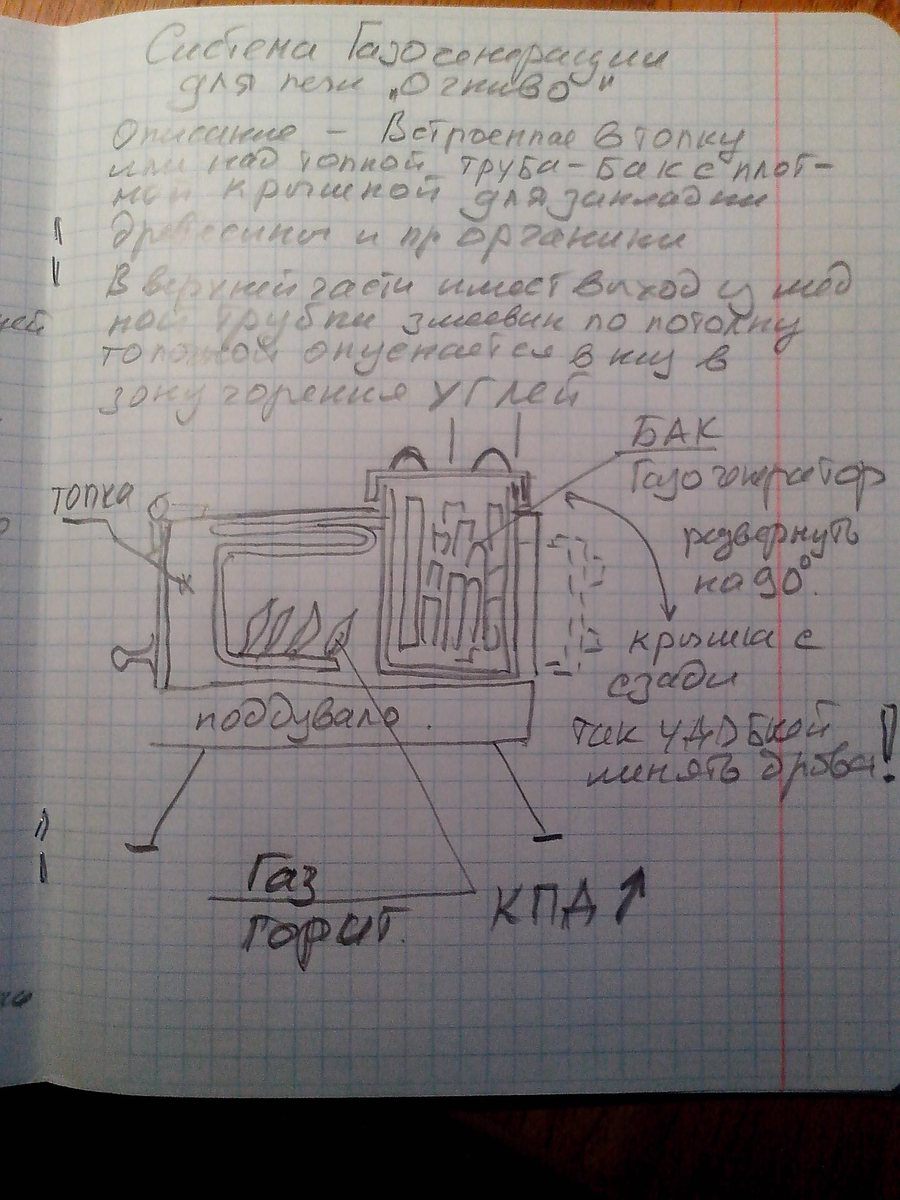 Система Газогенерации
для печи „Огниво"
Описание – Встроенная в топку
или над топкой труба-бак с плот-
ной крышкой для закладки
древесины и пр органики
В верхней части имеет выход и мед
ной трубки змеевик по потолку
топочной опускается вниз в
зону горения УГЛЕЙ
БАК
Газогенератор
топка
развернуть
на 90°.
крышка с
сзади
поддувало.
так удобней
менять дрова!
Газ
горит.
КПД ↑